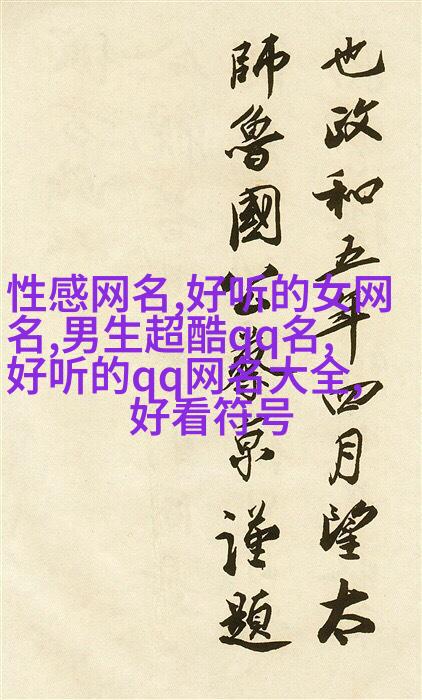 也政和五年四月望太
師魯國公蔡京謹題
性感网名,好听的女网
名,男生超酷qq名,
好听的qq网名大全,
好看符号